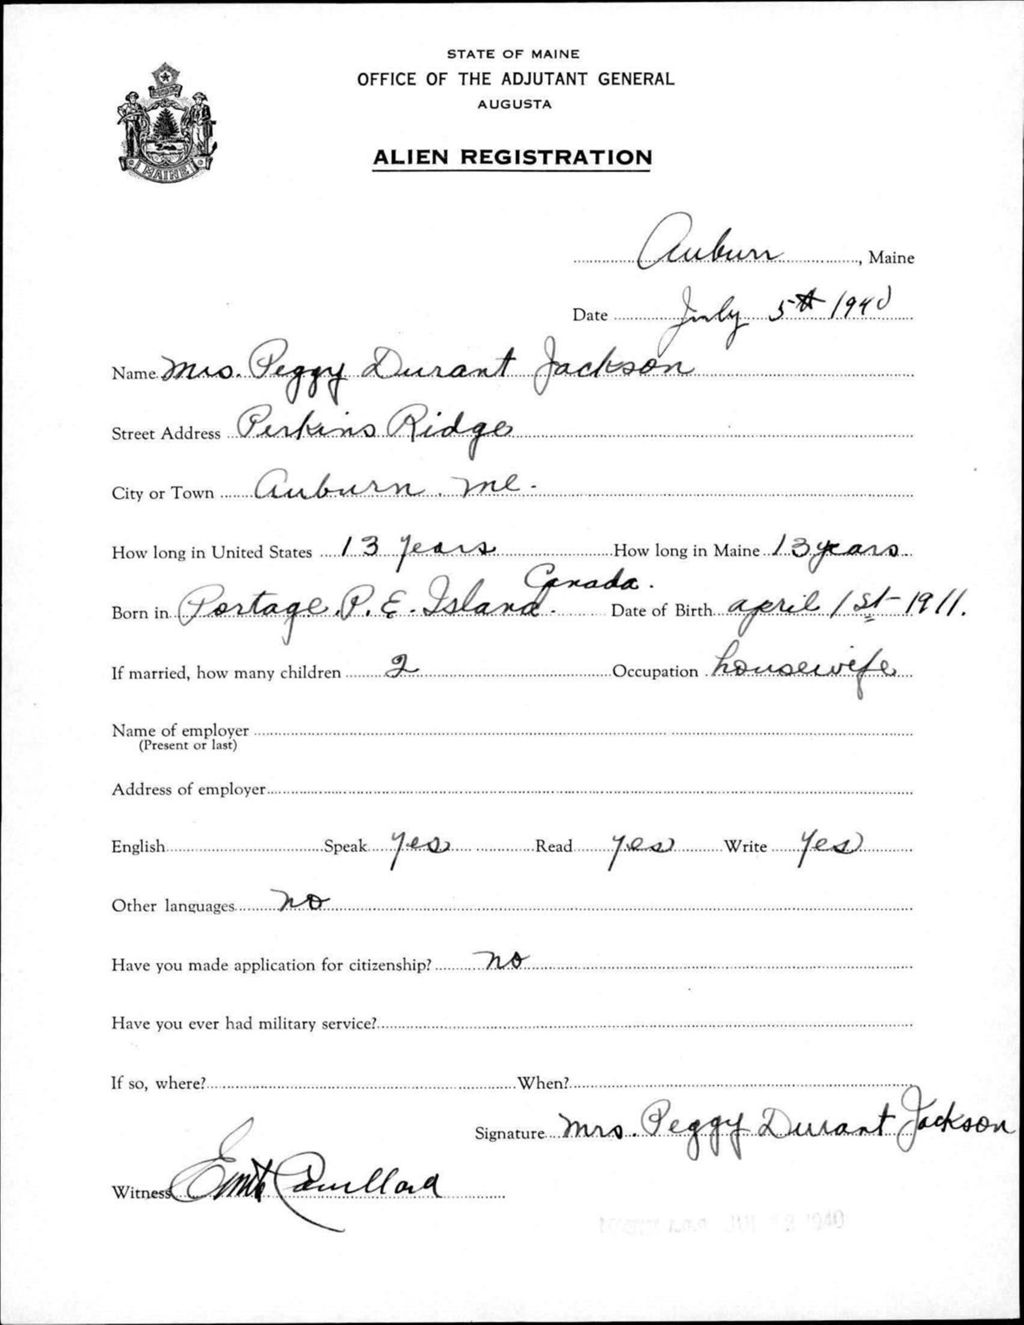 STATE OF MAINE
OFFICE OF THE ADJUTANT GENERAL
AUGUSTA
ALIEN REGISTRATION
MAINE
Auburn, Maine
Date July 5th 1940
Name Mrs. Peggy Durant Jackson
Street Address Perkins Ridge
City or Town Auburn. Me.
How long in United States 13 years How long in Maine 13 years
Canada.
Born in Portage, P. E. Island. Date of Birth april 1st-1911.
If married, how many children 2 Occupation housewife
Name of employer
(Present or last)
Address of employer
English Speak yes Read yes Write yes
Other languages no
Have you made application for citizenship? no
Have you ever had military service?
If so, where? When?
Signature Mrs. Peggy Durant Jackson
Witness
1940